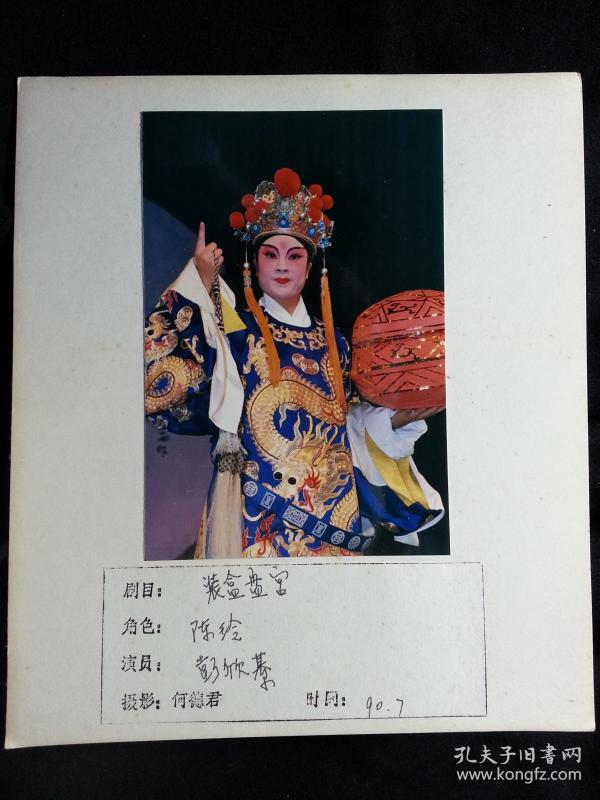 剧目: 装盒盘宫
角色: 陈纶
演员: 彭欣綦
摄影: 何德君 时间: 90.7
孔夫子旧书网
www.kongfz.com